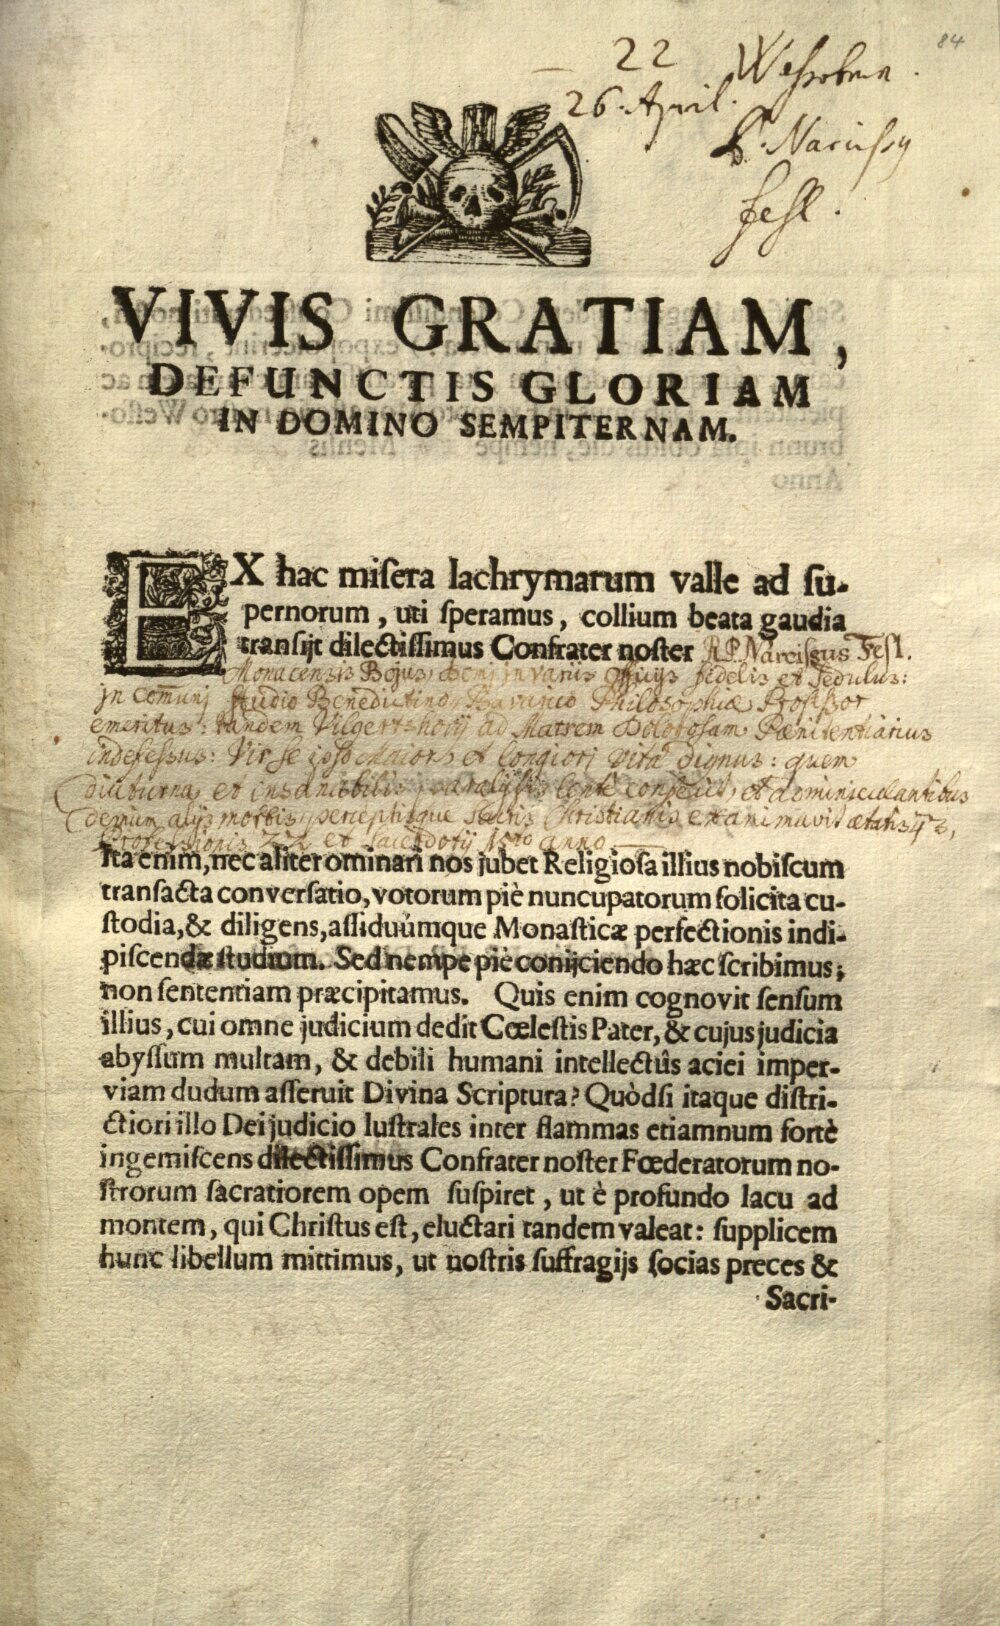 84
22 Wessobrun.
26. April.
P. Narcissq
Fesl.
VIVIS GRATIAM,
DEFUNCTIS GLORIAM
IN DOMINO SEMPITERNAM.
EX hac misera lachrymarum valle ad su-
pernorum, uti speramus, collium beata gaudia
transijt dilectissimus Confrater noster R.P. Narcissus Fesl.
Monacensis Bojus, Domi in varijs officijs fidelis et sedulus:
in Com̄uni studio Benedictino Bavarico Philosophiæ Professor
emeritus: tandem Vilgertshovij ad Matrem Dolorosam Pœnitentiarius
indefessus: Vir se ipso maior, et longiori vitâ dignus: quem
diuturna et insanabilis paralysis lentè confecit, et adminiculantibus
demum alijs morbis, perceptisque sacris Christianis exanimavit ætatis 43,
Professionis 22 et sacerdotij 15to anno.
Ita enim, nec aliter ominari nos jubet Religiosa illius nobiscum
transacta conversatio, votorum piè nuncupatorum solicita cu-
stodia, & diligens, assiduúmque Monasticæ perfectionis indi-
piscendæ studium. Sed nempe piè conijciendo hæc scribimus;
non sententiam præcipitamus. Quis enim cognovit sensum
illius, cui omne judicium dedit Cœlestis Pater, & cujus judicia
abyssum multam, & debili humani intellectûs aciei imper-
viam dudum asseruit Divina Scriptura? Quòdsi itaque distri-
ctiori illo Dei judicio lustrales inter flammas etiamnum fortè
ingemiscens dilectissimus Confrater noster Fœderatorum no-
strorum sacratiorem opem suspiret, ut è profundo lacu ad
montem, qui Christus est, eluctari tandem valeat: supplicem
hunc libellum mittimus, ut nostris suffragijs socias preces &
Sacri-